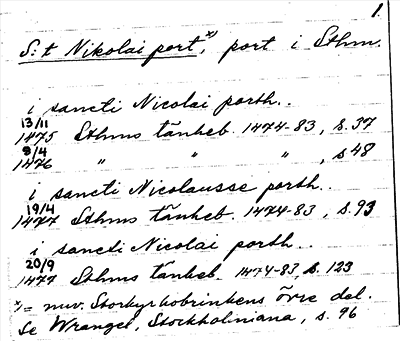 1.
S:t Nikolai port,*) port i Sthm.
i sancti Nicolai porth..
13/11
1475 Sthms tänkeb. 1474-83, s. 37
9/4
1476 " " " , s 48
i sancti Nicolausse porth..
19/4
1477 Sthms tänkeb. 1474-83, s. 93
i sancti Nicolai porth..
20/9
1477 Sthms tänkeb. 1474-83, s. 123
*)= nuv. Storkyrkobrinkens övre del.
Se Wrangel, Stockholmiana, s. 96